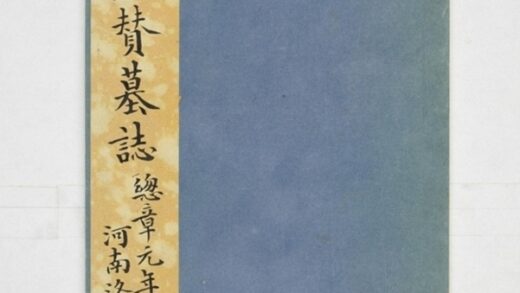 賛墓誌
總章元年
河南洛